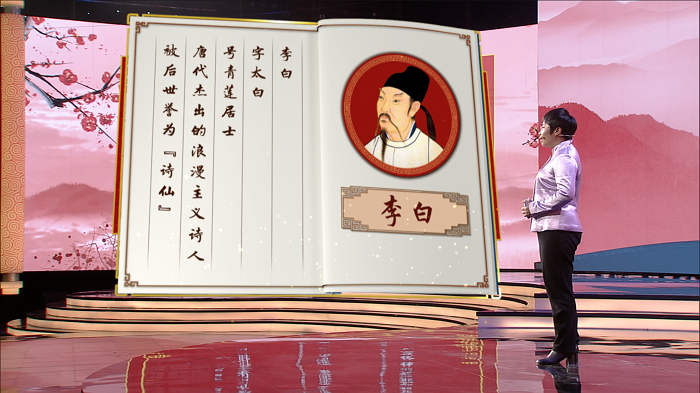 李白
字太白
号青莲居士
唐代杰出的浪漫主义诗人
被后世誉为『诗仙』
李白